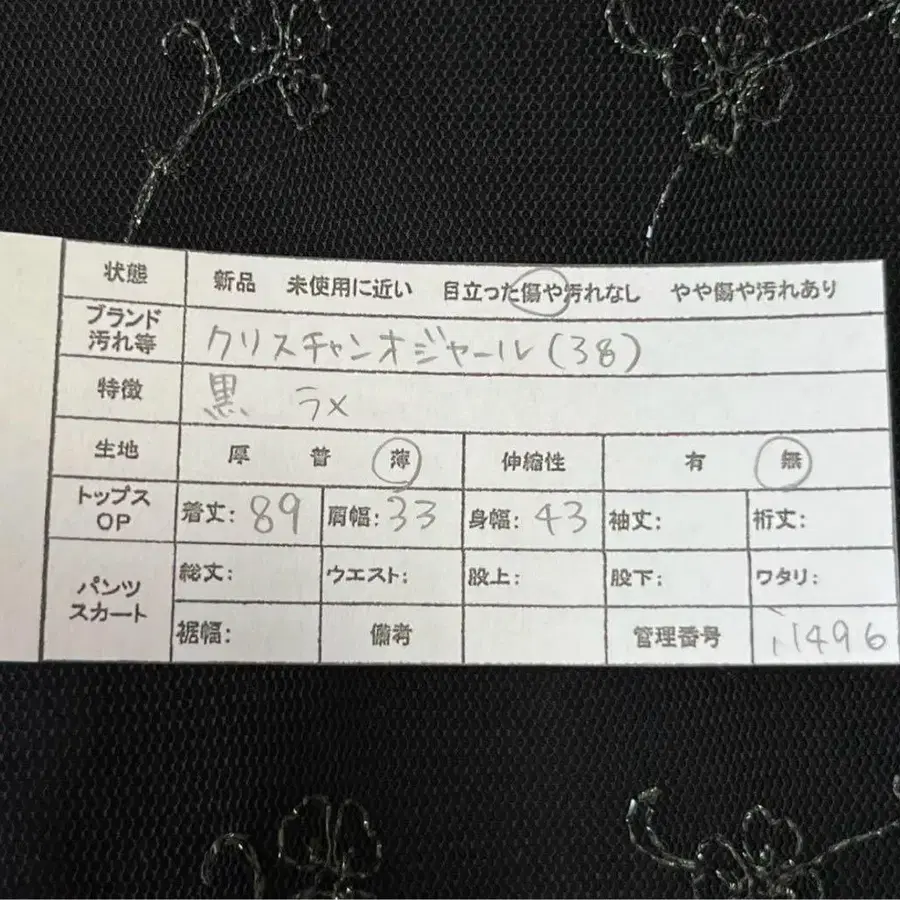 状態 新品 未使用に近い 目立った傷や汚れなし やや傷や汚れあり
ブランド
汚れ等 クリスチャンオジャール(38)
特徴 黒 ラメ
生地 厚 普 薄 伸縮性 有 無
トップス
OP 着丈: 89 肩幅: 33 身幅: 43 袖丈: 裄丈:
パンツ
スカート 総丈: ウエスト: 股上: 股下: ワタリ:
裾幅: 備考 管理番号 1496